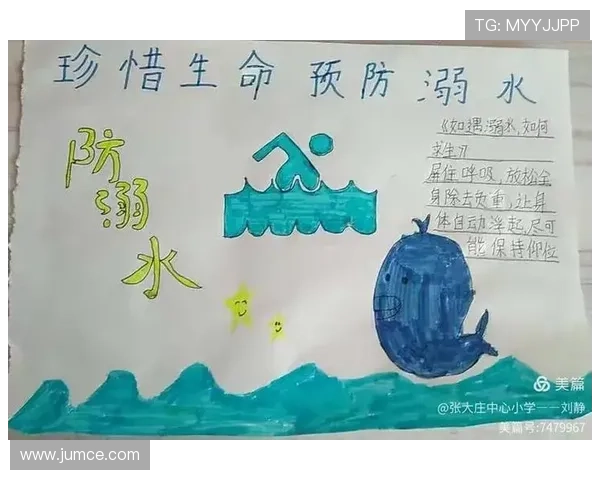 TG: MYYJJPP
珍惜生命 预防溺水
防溺水
《如遇溺水,如何
求生》
屏住呼吸,放松全
身除去负重,让身
体自动浮起,尽可
能保持仰位
美篇
@张大庄中心小学——刘静
美篇号:7479967
www.jumce.com